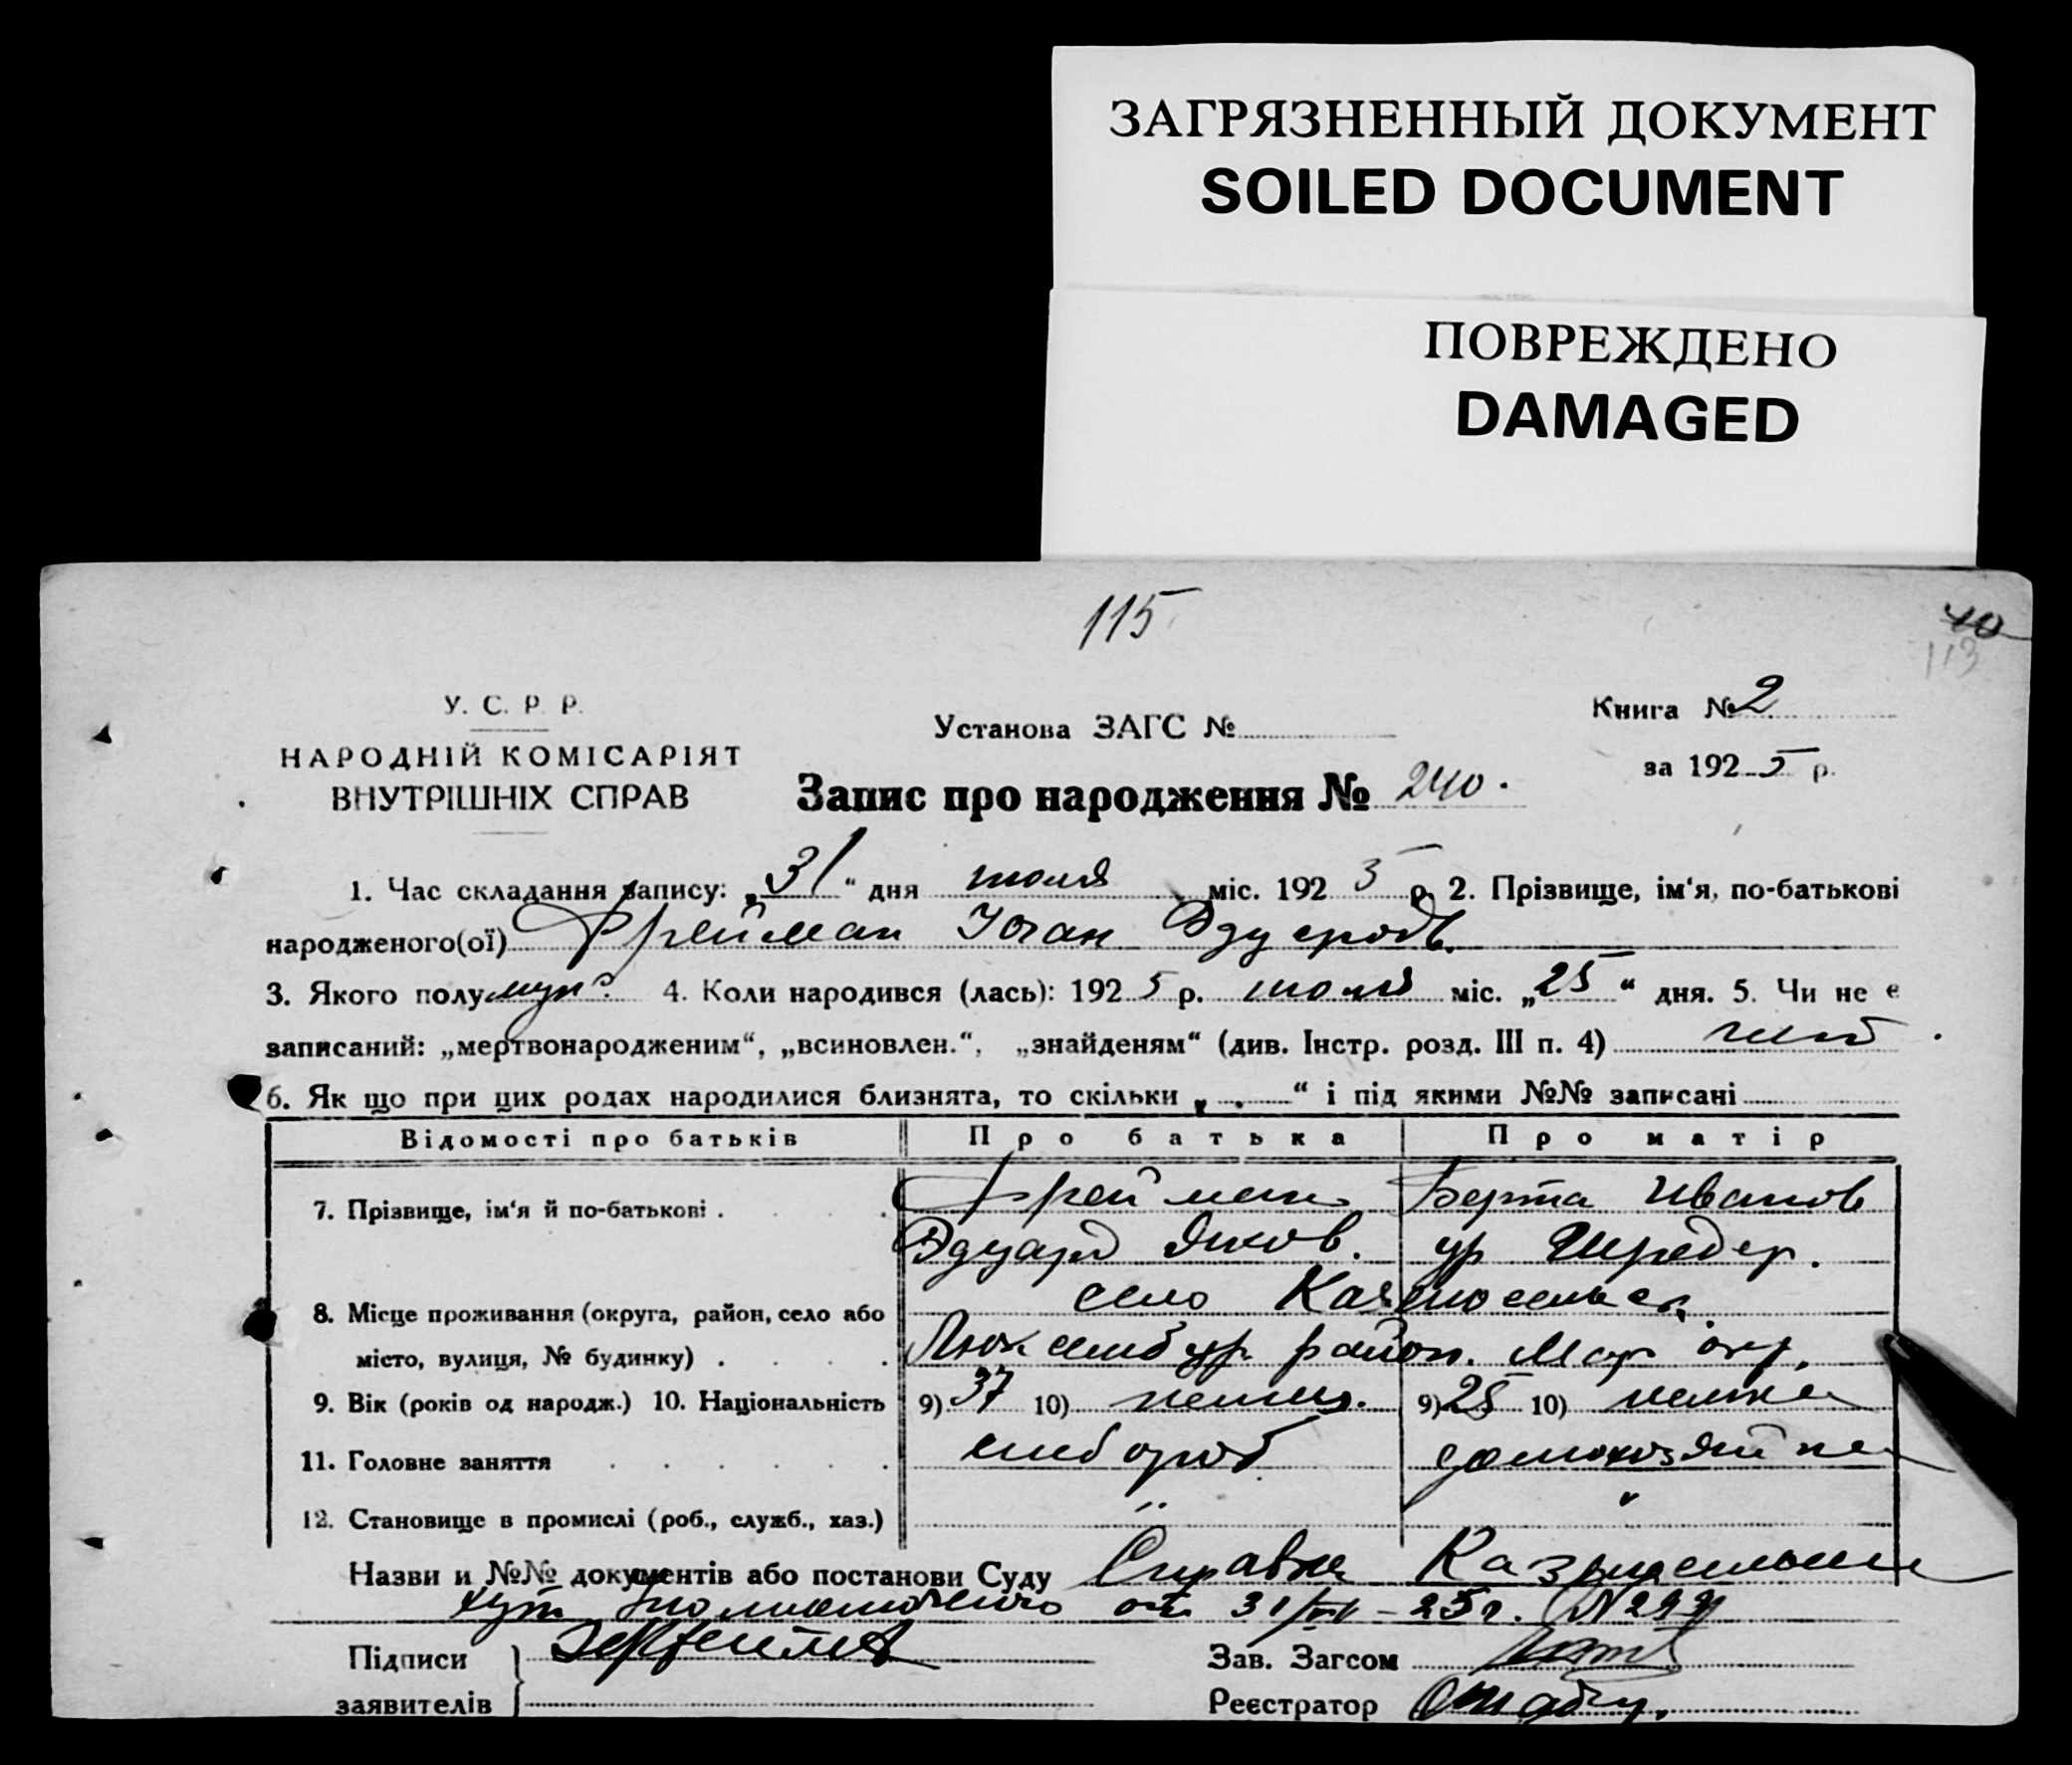 ЗАГРЯЗНЕННЫЙ ДОКУМЕНТ
SOILED DOCUMENT
ПОВРЕЖДЕНО
DAMAGED
115
40
113
У. С. Р. Р.
НАРОДНІЙ КОМІСАРІЯТ
ВНУТРІШНІХ СПРАВ
Установа ЗАГС №
Книга № 2
за 1925 р.
Запис про народження № 240.
1. Час складання запису: „31“ дня июля міс. 1925 р. 2. Прізвище, ім‘я, по-батькові
народженого(ої) Фрейман Иоган Эдуардов.
3. Якого полу муж. 4. Коли народився (лась): 1925 р. июля міс. „25“ дня. 5. Чи не є
записаний: „мертвонародженим“, „всиновлен.“, „знайденям“ (див. Інстр. розд. III п. 4) нет
6. Як що при цих родах народилися близнята, то скільки „ “ і під якими №№ записані
Відомості про батьків Про батька Про матір
7. Прізвище, ім‘я й по-батькові . Фрейман Берта Иванов
Эдуард Яков. ур Шредер.
8. Місце проживання (округа, район, село або село
місто, вулиця, № будинку) . . . . Люксембур район. Мар окр.
9. Вік (років од народж.) 10. Національність 9) 37 10) немец. 9) 25 10) немка
11. Головне заняття . . . . . . хлебороб домохозяйка
12. Становище в промислі (роб., служб., хаз.) " "
Назви и №№ документів або постанови Суду Справка
от 31/VII – 25 г. №
Підписи
заявителів
Зав. Загсом
Реєстратор